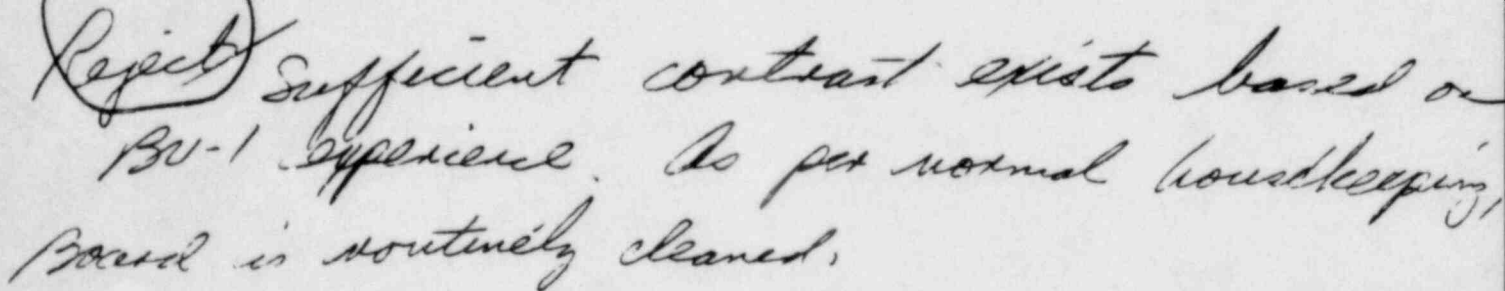 Reject Sufficient contrast exists based on
BV-1 experience. As per normal housekeeping,
Board is routinely cleaned.